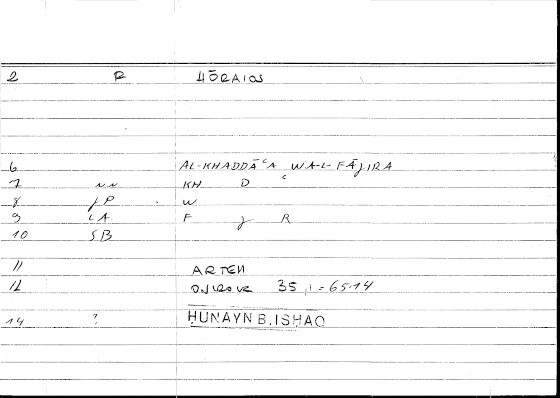 2 R HŌRAIOS
6 AL-KHADDĀʿA WA-L-FĀJIRA
7 NN KH D ʿ
8 JP W
9 LA F J R
10 SB
11 ARTEM
12 35,1=65.14
14 ? ḤUNAYN B. ISḤAQ